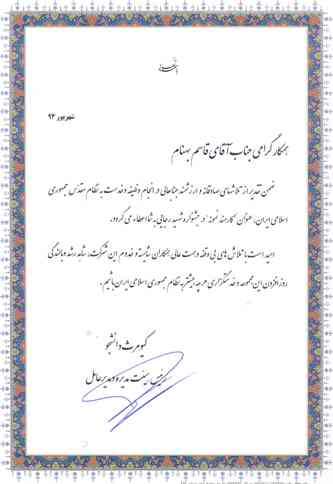 شهریور ۹۴
همکار گرامی جناب آقای قاسم بهنام
ضمن تقدیر از تلاشهای صادقانه و ارزشمند جنابعالی در انجام وظیفه و خدمت به نظام مقدس جمهوری
اسلامی ایران، عنوان "کارمند نمونه" در جشنواره شهید رجایی به شما اعطاء می گردد.
امید است با تلاش های بی وقفه و همت عالی همکاران شایسته و خدوم این شرکت، شاهد رشد و بالندگی
روزافزون این مجموعه و خدمتگزاری هر چه بیشتر به نظام جمهوری اسلامی ایران باشیم.
کیومرث دانشجو
رئیس هیئت مدیره و مدیرعامل